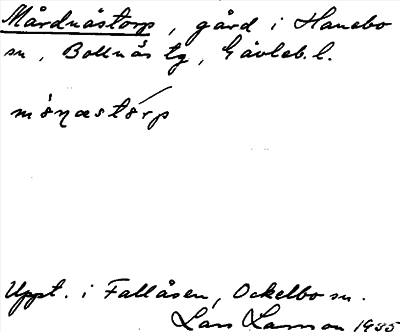 Mårdnästorp, gård i Hanebo
sn, Bollnäs tg, Gävleb. l.
mọ́ṇastórp
Uppt. i Fallåsen, Ockelbo sn.
Lars Larsson 1935